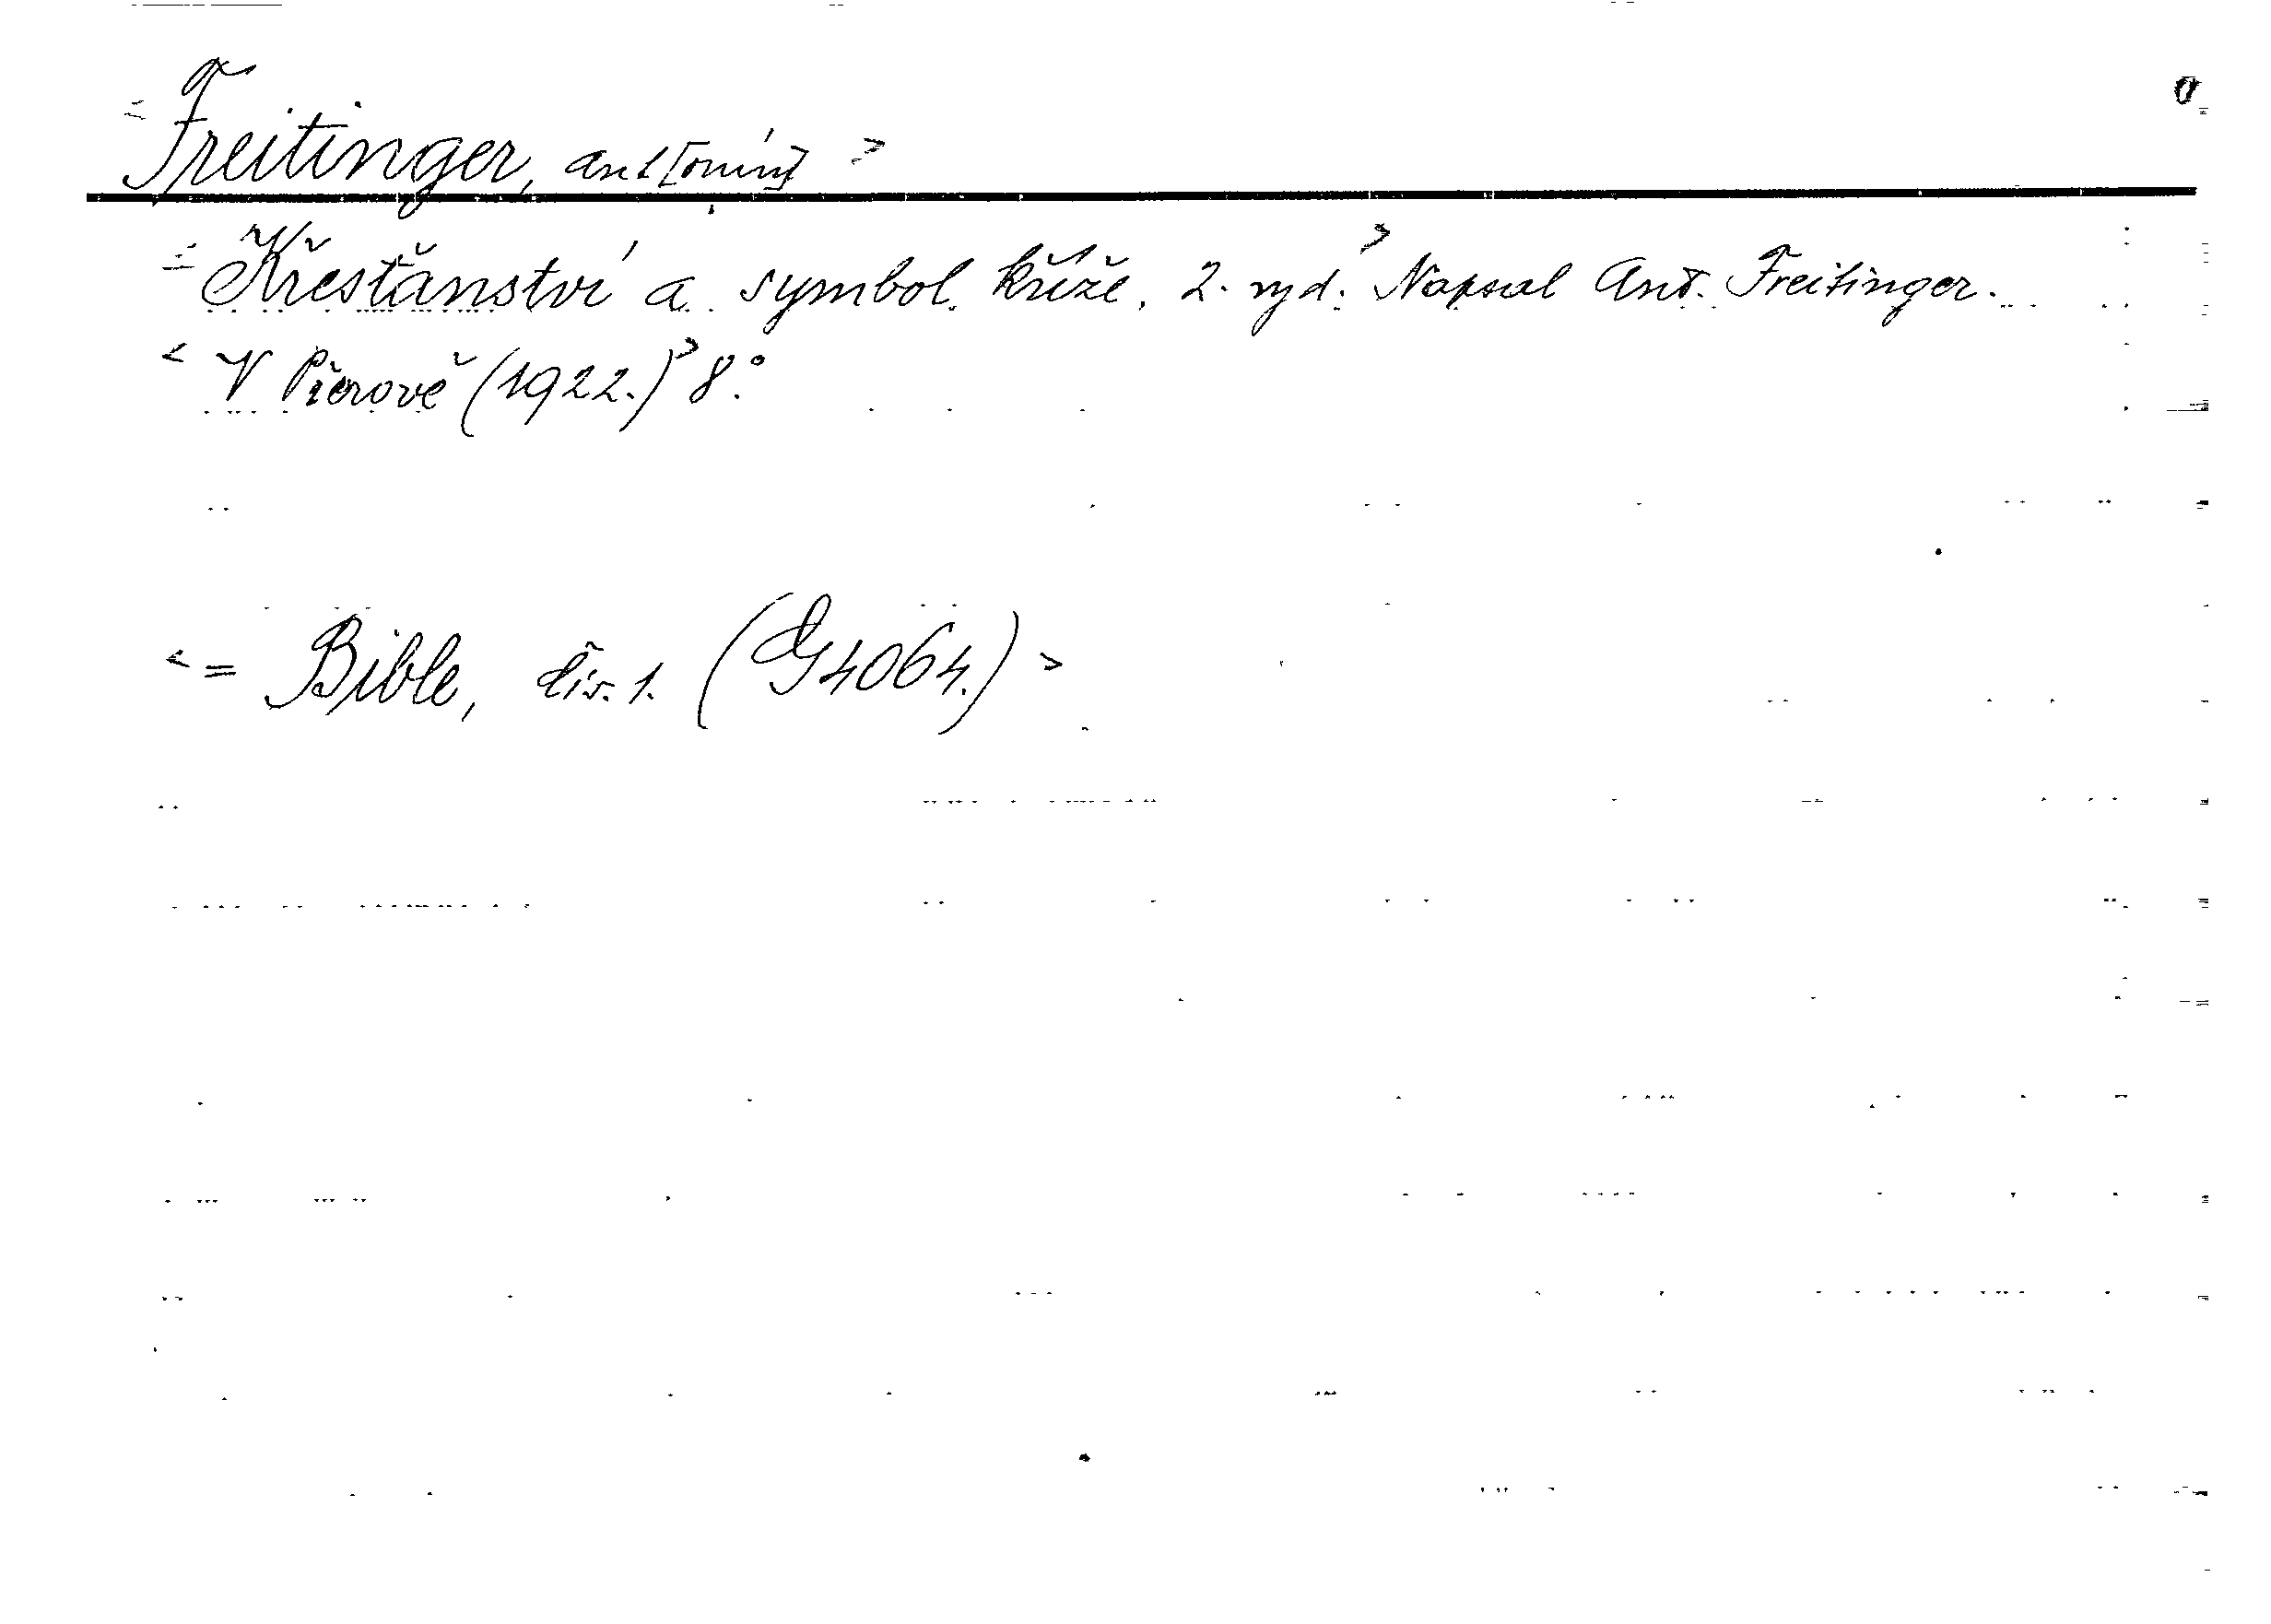 < Freitinger, Ant[onín] >
< Křesťanství a symbol kříže. 2. vyd. > Napsal Ant. Freitinger.
< V Přerově (1922.) > 8°.
< = Bible, čís. 1. (G4064.) >